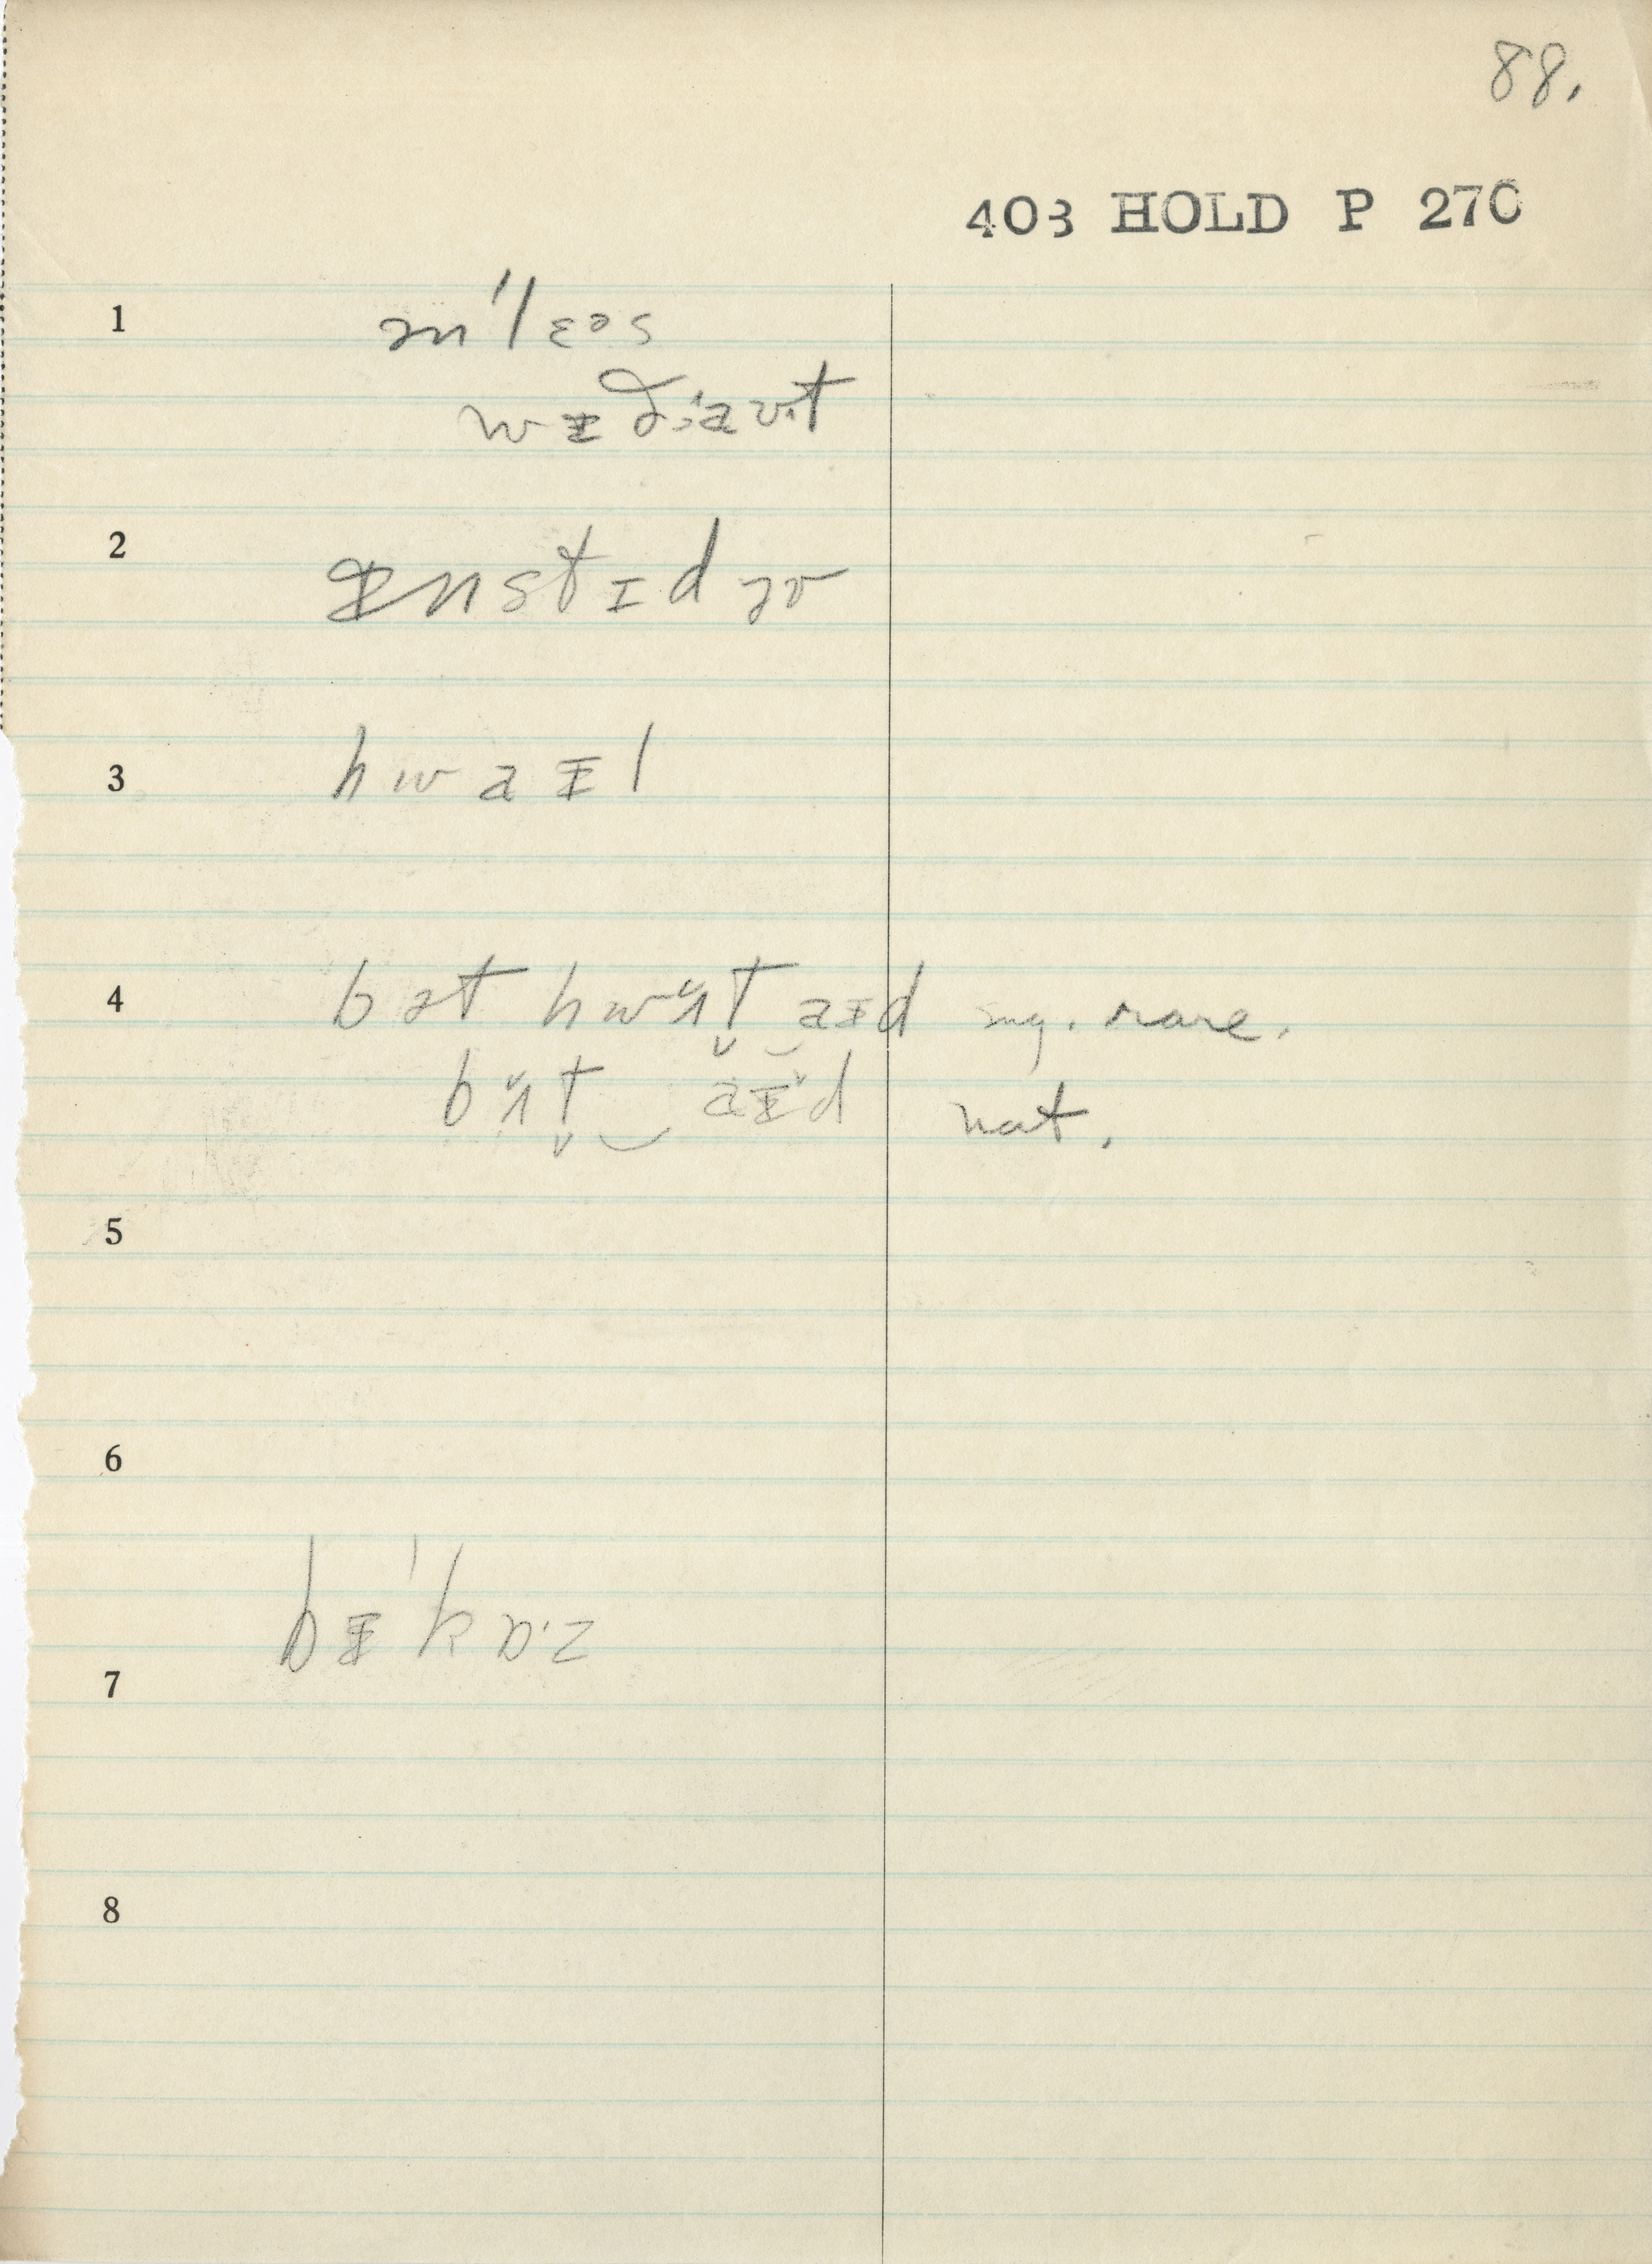 88.
403 HOLD P 270
1 ən'lɛəs
wɪð:aʊt
2 ɪnstɪd əv
3 hwaɪl
4 bət hwʌt aɪd sug. rare.
bʌt aɪd nat.
5
6
bɪ'kɒ·z
7
8